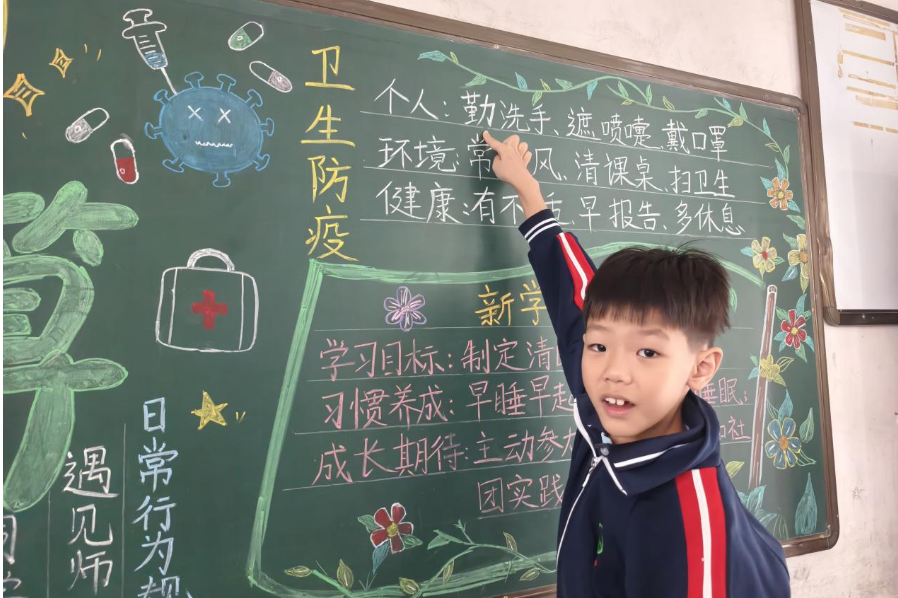 卫生防疫
个人：勤洗手、遮喷嚏、戴口罩
环境：常 风、清课桌、扫卫生
健康：有不 早报告、多休息
新学
学习目标：制定清
习惯养成：早睡早起 睡眠；
成长期待：主动参 社
团实践
算
日常行为规
遇见师